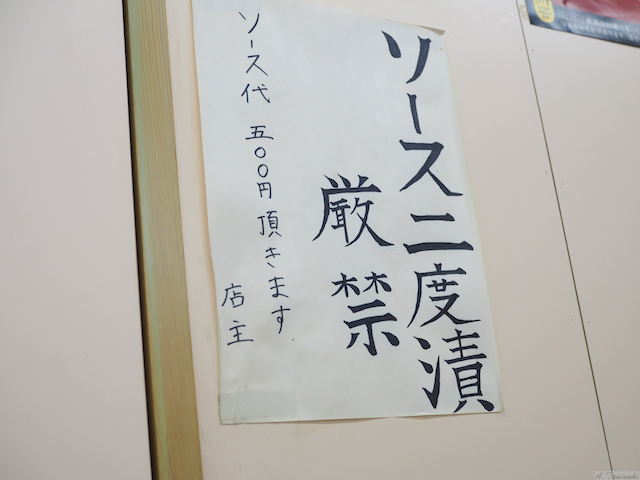 ソース二度漬
厳禁
ソース代 五〇〇円頂きます.
店主